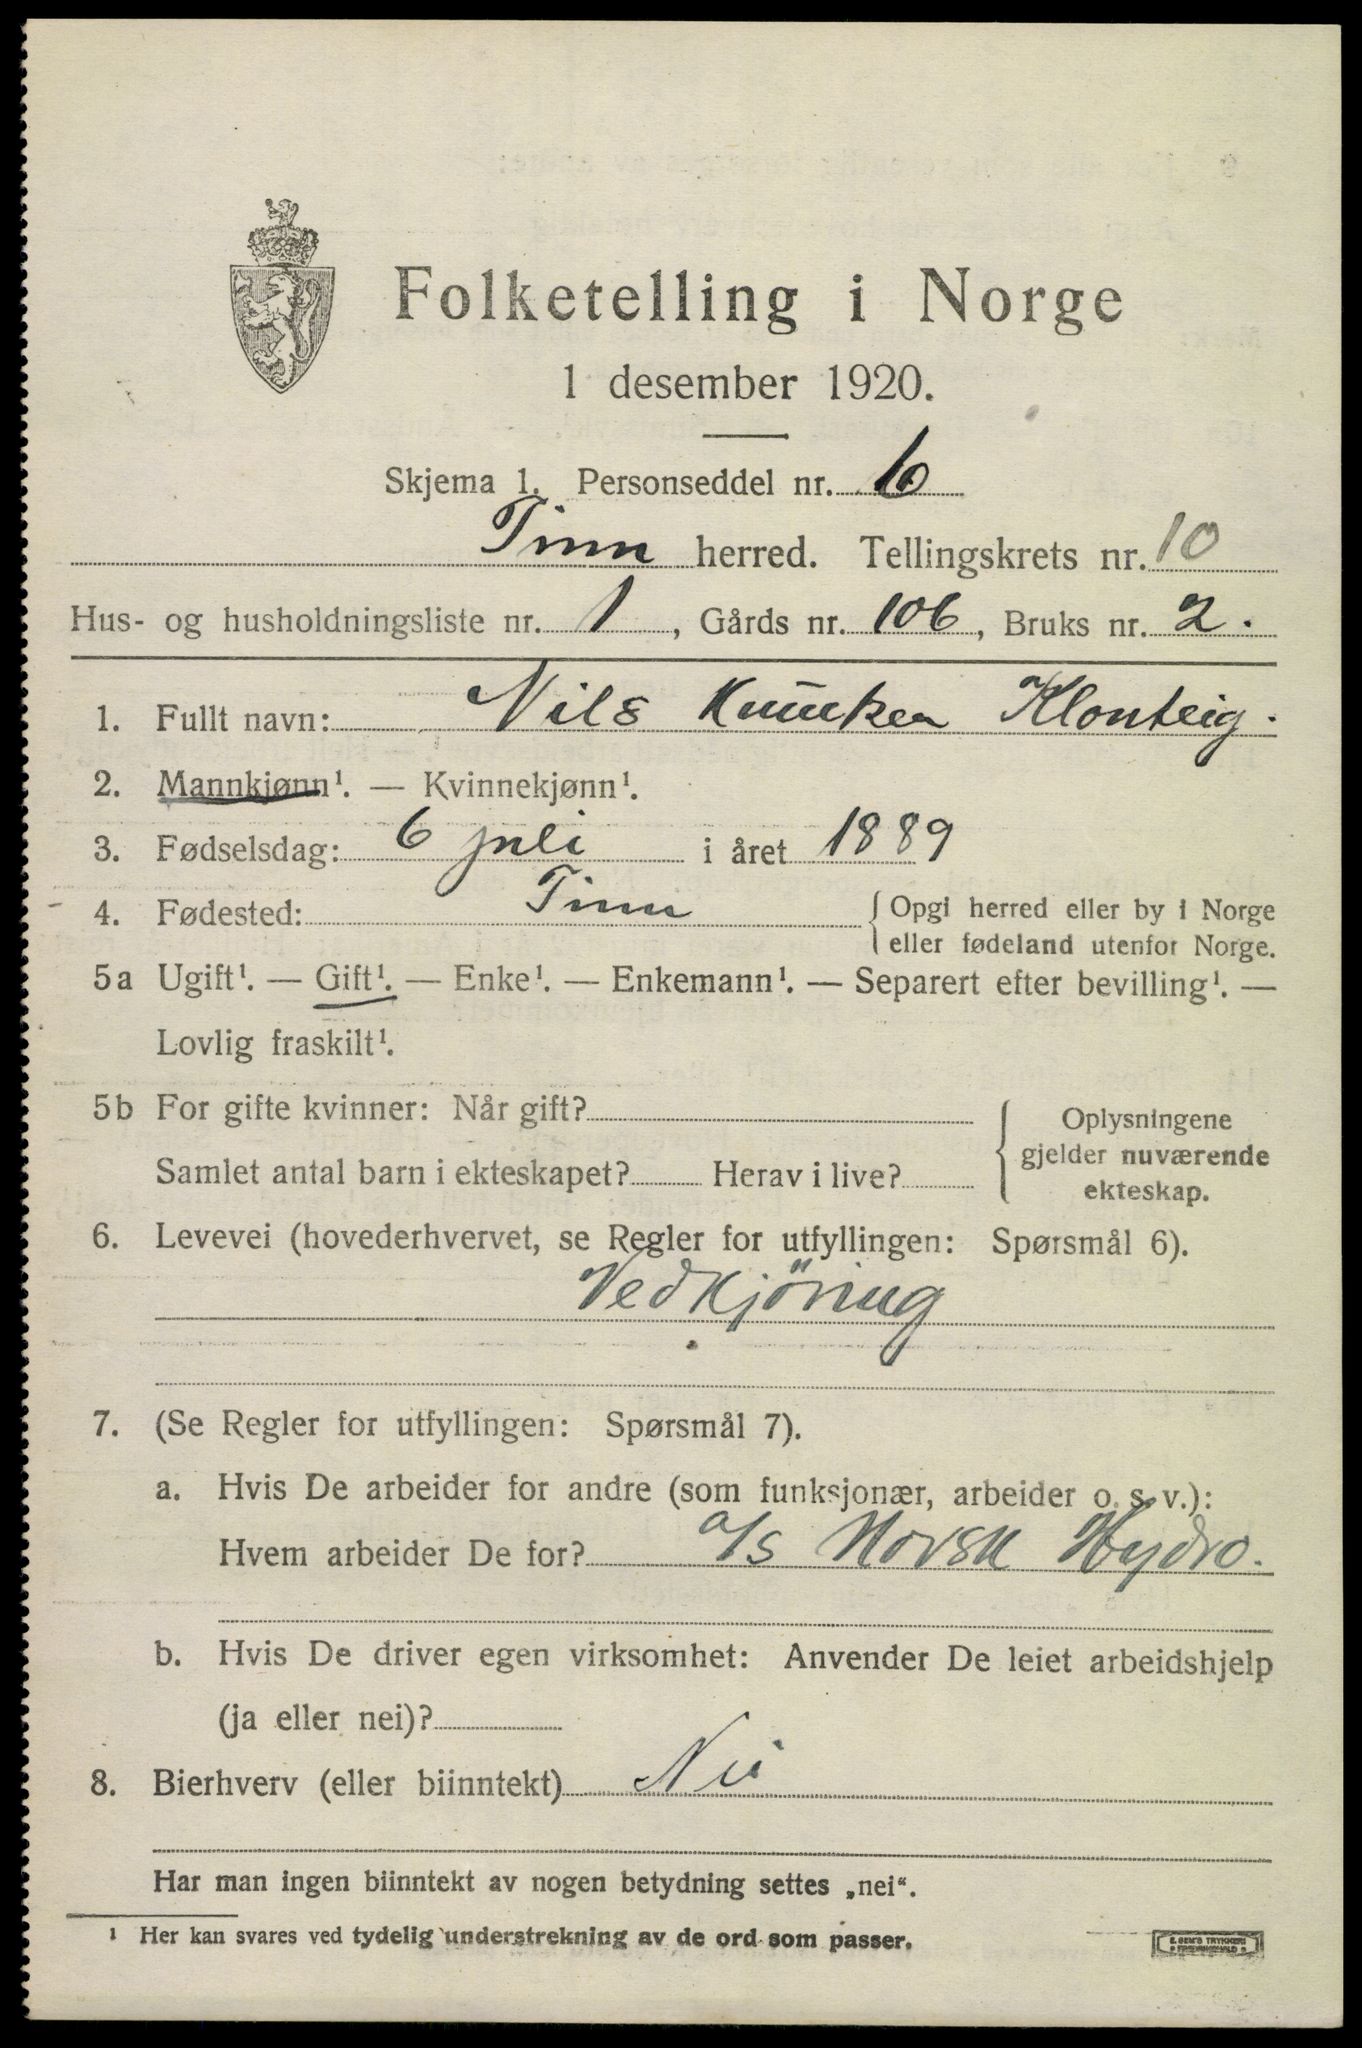 Folketelling i Norge
1 desember 1920.
Skjema 1. Personseddel nr. 6
Tinn herred. Tellingskrets nr. 10
Hus- og husholdningsliste nr. 1, Gårds nr. 106, Bruks nr. 2.
1. Fullt navn: Nils Klonteig.
2. Mannkjønn¹. — Kvinnekjønn¹.
3. Fødselsdag: 6 juli i året 1889
4. Fødested: Tinn { Opgi herred eller by i Norge
eller fødeland utenfor Norge.
5a Ugift¹. — Gift¹. — Enke¹. — Enkemann¹. — Separert efter bevilling¹. —
Lovlig fraskilt¹.
5b For gifte kvinner: Når gift?
Samlet antal barn i ekteskapet? Herav i live?
{ Oplysningene
gjelder nuværende
ekteskap.
6. Levevei (hovederhvervet, se Regler for utfyllingen: Spørsmål 6).
Vedkjöring
7. (Se Regler for utfyllingen: Spørsmål 7).
a. Hvis De arbeider for andre (som funksjonær, arbeider o. s. v.):
Hvem arbeider De for? a/s Norsk Hydro.
b. Hvis De driver egen virksomhet: Anvender De leiet arbeidshjelp
(ja eller nei)?
8. Bierhverv (eller biinntekt) Nei
Har man ingen biinntekt av nogen betydning settes „nei“.
¹ Her kan svares ved tydelig understrekning av de ord som passer.